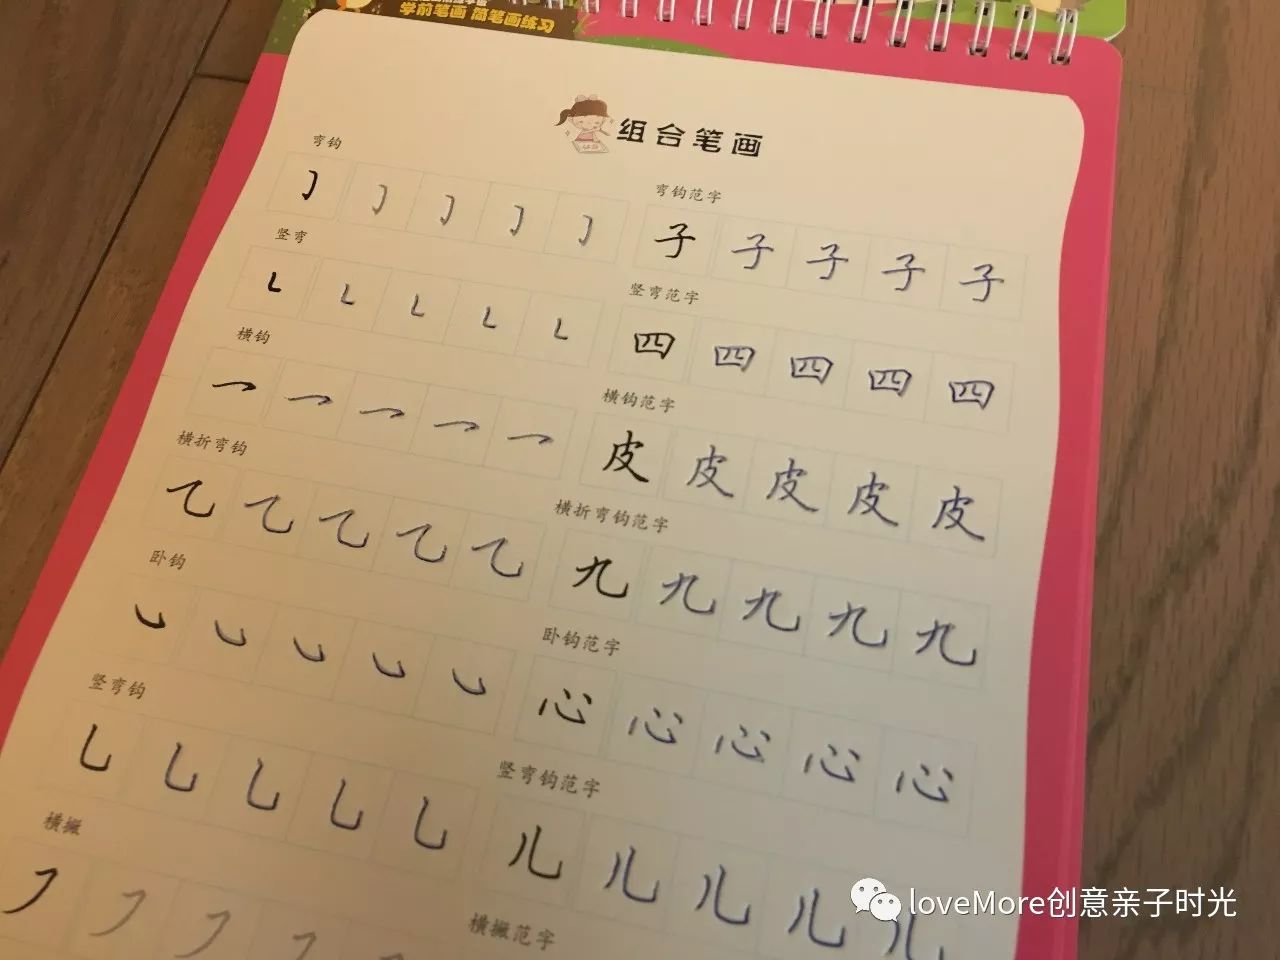 学前笔画 简笔画练习
组合笔画
弯钩
弯钩范字
子 子 子 子 子
竖弯
竖弯范字
四 四 四 四 四
横钩
横钩范字
皮 皮 皮 皮 皮
横折弯钩
乙 乙 乙 乙 乙
横折弯钩范字
九 九 九 九 九
卧钩
卧钩范字
心 心 心 心 心
竖弯钩
乚 乚 乚 乚 乚
竖弯钩范字
儿 儿 儿 儿 儿
横撇
横撇范字
loveMore创意亲子时光